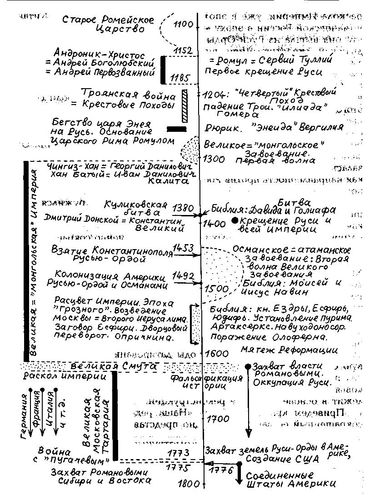 Старое Ромейское
Царство
1100
1152
Андроник-Христос
= Андрей Боголюбский
= Андрей Первозванный
1185
= Ромул = Сервий Туллий
Первое крещение Руси
Троянская война
= Крестовые Походы
1204: "Четвертый" Крестовый
Поход
Падение Трои. "Илиада"
Гомера
Бегство царя Энея
на Русь. Основание
Царского Рима Ромулом
Рюрик. "Энеида" Вергилия
Великое="монгольское"
Завоевание.
1300 Первая волна
Чингиз-хан = Георгий Данилович
Хан Батый = Иван Данилович
Калита
Великая = "Монгольская" Империя
Куликовская
битва
1380
Дмитрий Донской = Константин
Великий
Битва
Библия: Давида и Голиафа
1400
Крещение Руси и
всей Империи
Взятие Константинополя
Русью-Ордой
1453
Османское = атаманское
Завоевание: Вторая
волна Великого
Завоевания
Колонизация Америки
Русью-Ордой и Османами
1492
1500
Библия: Моисей и
Иисус Навин
Расцвет Империи. Эпоха
"Грозного". Возведение
Москвы = Второго Иерусалима.
Заговор Есфири. Дворцовый
переворот. Опричнина.
Библия: кн. Ездры, Есфирь,
Юдифь. Установление Пурима.
Артаксеркс. Навуходоносор.
Поражение Олоферна.
1600
Мятеж Реформации
Великая Смута
Раскол империи
Фальсификация
истории
Захват власти
Романовыми.
Оккупация Руси.
Германия
Франция
Италия
и т.д.
Великая
Московская
Тартария
1700
Война
с "Пугачевым"
1773
1775
Захват земель Руси-Орды в Аме-
рике,
Создание США
1776
Захват Романовыми
Сибири и Востока
1800
Соединенные
Штаты Америки